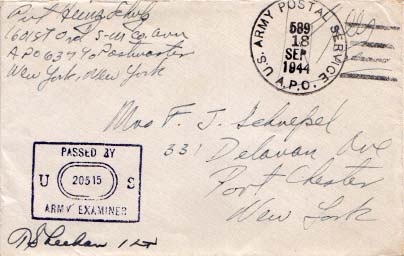 Pvt Heinz
1601st Ord S-M Co. Avn
APO 637 % Postmaster
New York, New York
U.S. ARMY POSTAL SERVICE
A.P.O.
589
18
SEP
1944
Mrs F. J. Schnepel
331 Delavan Ave
Port Chester
New York
PASSED BY
U 20515 S
ARMY EXAMINER
Sheehan 1 Lt